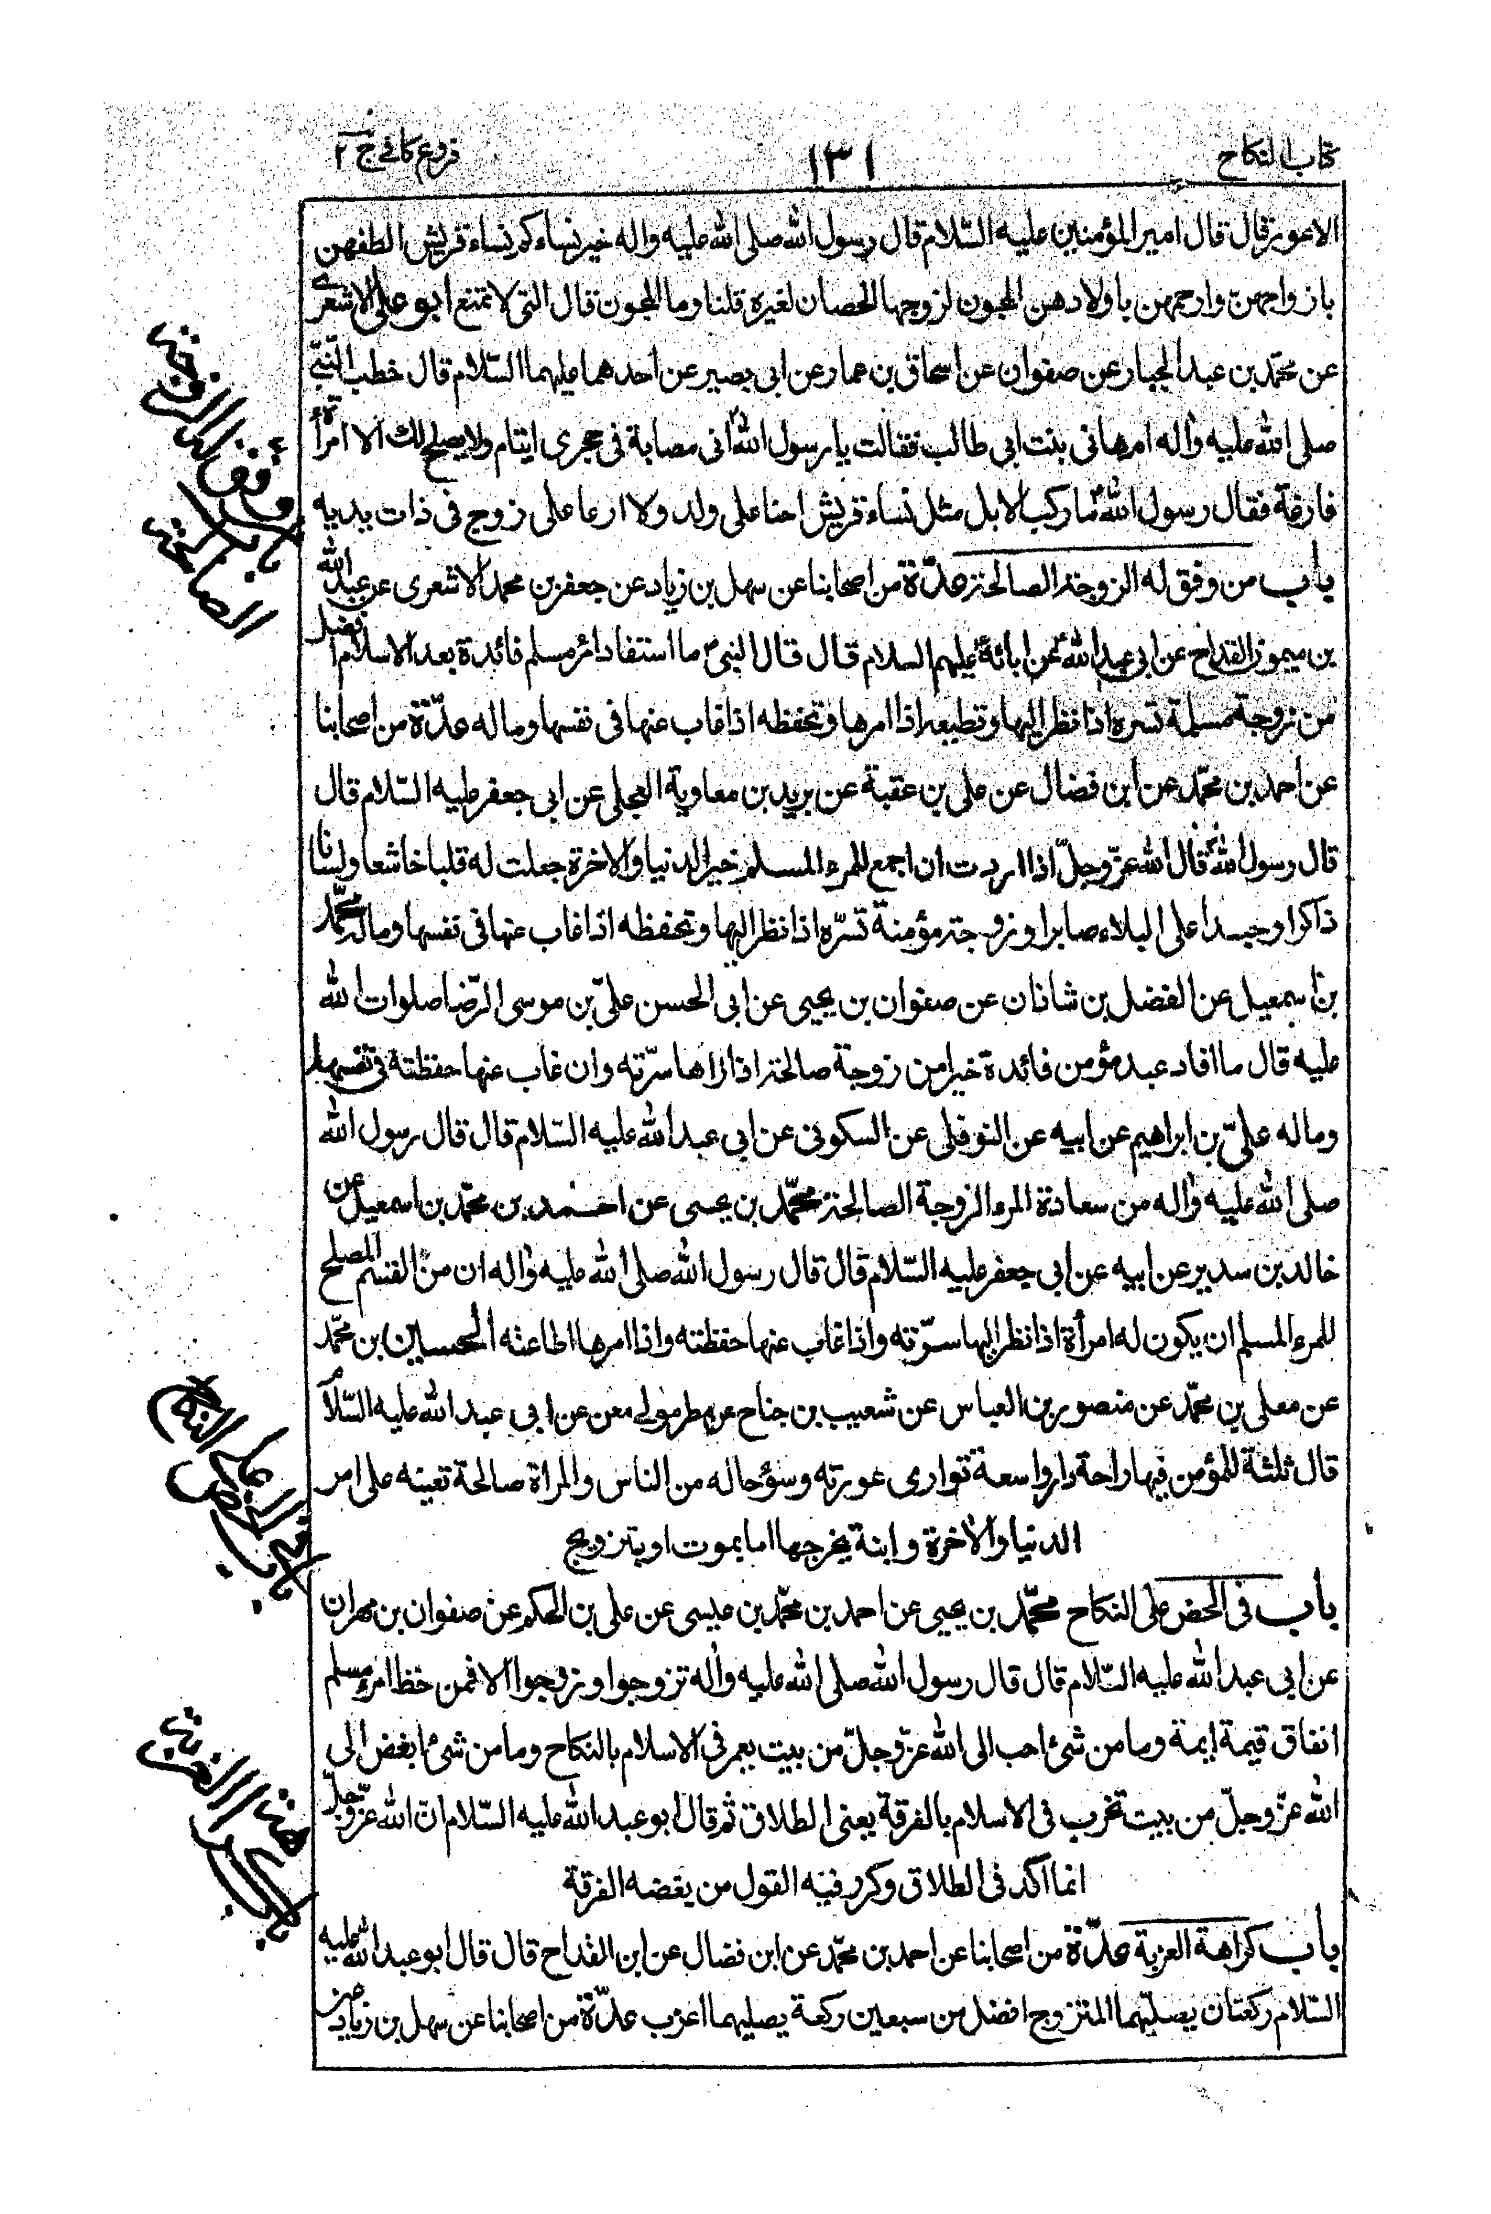 كتاب النكاح
١٣١
فروع كافي ج ٢
الاعور قال قال امير المؤمنين عليه السّلام قال رسول الله صلى الله عليه واله خير نساءكم نساء قريش الطفهن
بازواجهن وارحمهن باولادهن المجون لزوجها الحصان لغيره قلنا وما المجون قال التى لا تمتنع ابو على الاشعرى
عن محمّد بن عبد الجبار عن صفوان عن اسحاق بن عمار عن ابى بصير عن احدهما عليهما السّلام قال خطب النبىّ
صلى الله عليه واله ام هانى بنت ابى طالب فقالت يا رسول الله انى مصابة فى حجرى ايتام ولا يصلح لك الا امرأة
فارغة فقال رسول الله ما ركب الابل مثل نساء قريش احنا على ولد ولا ارعا على زوج فى ذات يديه
باب من وفق له الزوجة الصالحة عدّة من اصحابنا عن سهل بن زياد عن جعفر بن محمد الاشعرى عن عبد الله
بن ميمون القداح عن ابى عبد الله عن ابائه عليهم السلام قال قال النبى ص ما استفاد امرء مسلم فائدة بعد الاسلام افضل
من زوجة مسلمة تسره اذا نظر اليها وتطيعه اذا امرها وتحفظه اذا غاب عنها فى نفسها وماله عدّة من اصحابنا
عن احمد بن محمّد عن ابن فضال عن على بن عقبة عن بريد بن معاوية العجلى عن ابى جعفر عليه السّلام قال
قال رسول الله قال الله عزّ وجلّ اذا اردت ان اجمع للمرء المسلم خير الدنيا والاخرة جعلت له قلبا خاشعا ولسانا
ذاكرا وجسدا على البلاء صابرا وزوجة مؤمنة تسرّه اذا نظر اليها وتحفظه اذا غاب عنها فى نفسها وماله محمّد
بن اسمعيل عن الفضل بن شاذان عن صفوان بن يحيى عن ابى الحسن علىّ بن موسى الرّضا صلوات الله
عليه قال ما افاد عبد مؤمن فائدة خيرا من زوجة صالحة اذا راها سرّته وان غاب عنها حفظته فى نفسها
وماله علىّ بن ابراهيم عن ابيه عن النوفلى عن السكونى عن ابى عبد الله عليه السّلام قال قال رسول الله
صلى الله عليه واله من سعادة المرء الزوجة الصالحة محمّد بن يحيى عن احمد بن محمّد بن اسمعيل عن
خالد بن سدير عن ابيه عن ابى جعفر عليه السّلام قال قال رسول الله صلى الله عليه واله ان من القسم المصلح
للمرء المسلم ان يكون له امرأة اذا نظر اليها سرّته واذا غاب عنها حفظته واذا امرها اطاعته الحسين بن محمّد
عن معلى بن محمّد عن منصور بن العباس عن شعيب بن جناح عن مطر مولى معن عن ابى عبد الله عليه السّلام
قال ثلثة للمؤمن فيها راحة دار واسعة توارى عورته وسوء حاله من الناس والمراة صالحة تعينه على امر
الدنيا والاخرة وابنة يخرجها اما بموت او بتزويج
باب فى الحض على النكاح محمّد بن يحيى عن احمد بن محمّد بن عيسى عن على بن الحكم عن صفوان بن مهران
عن ابى عبد الله عليه السّلام قال قال رسول الله صلى الله عليه واله تزوجوا وزوجوا الا فمن حظ امرء مسلم
انفاق قيمة ايمة وما من شئ احب الى الله عزّ وجلّ من بيت يعمر فى الاسلام بالنكاح وما من شئ ابغض الى
الله عزّ وجلّ من بيت تخرب فى الاسلام بالفرقة يعنى الطلاق ثم قال ابو عبد الله عليه السّلام انّ الله عزّ وجلّ
انما اكد فى الطلاق وكرر فيه القول من بغضه الفرقة
باب كراهة العزبة عدّة من اصحابنا عن احمد بن محمّد عن ابن فضال عن ابن القداح قال قال ابو عبد الله عليه
السّلام ركعتان يصليهما المتزوج افضل من سبعين ركعة يصليهما اعزب عدّة من اصحابنا عن سهل بن زياد عن
باب من وفق له الزوجة
الصالحة
باب فى الحض
على النكاح
باب كراهة العزبة